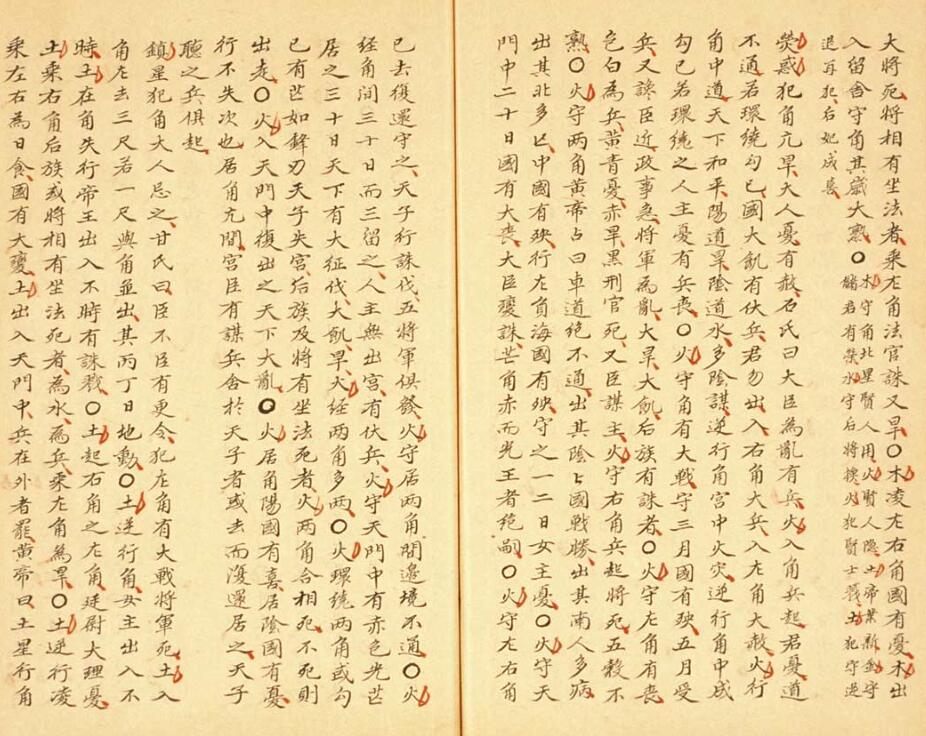 大將死將相有坐法者乘左角法官誅又旱〇木凌左右角國有憂木出
入留舍守角其歲大熟〇木守角北星賢人用火賢人隱土帝業新金守
儲君有禁水守后將撲火犯賢士戮土犯守逆
退再犯右妃成喜
熒惑犯角亢旱大人憂有赦石氏曰大臣為亂有兵火入角兵起君憂道
不通若環繞勾巳國大飢有伏兵君勿出入右角大兵入左角大赦火行
角中道天下和平陽道旱陰道水多陰謀逆行角宮中火灾逆行角中成
勾巳若環繞之人主憂有兵喪〇火守角有大戰守三月國有殃五月受
兵又讒臣近政事急將軍為亂大旱大飢后族有誅者〇火守左角有喪
色白為兵黃青憂赤旱黑刑官死又臣謀主火守右角兵起將死五穀不
熟〇火守兩角黃帝占曰車道絕不通出其陰國戰勝出其南人多病
出其北多亡中國有殃行左角海國有殃守之一二日女主憂〇火守天
門中二十日國有大喪大臣變誅芒角赤而光王者絕嗣〇火守左右角
已去復還守之天子行誅伐五將軍俱發火守居兩角間邊境不通〇火
經角間三十日而三留之人主無出宮有伏兵火守天門中有赤色光芒
居之三十日天下有大征伐大飢旱火經兩角多雨〇火環繞兩角或勾
已有芒如鋒刃天子失宮后族及將有坐法死者火兩角合相死不死則
出走〇火入天門中復出之天下大亂〇火居角陽國有喜居陰國有憂
行不失次也居角亢間宮臣有謀兵舍於天子者或去而復還居之天子
聽之兵俱起
鎮星犯角大人忌之甘氏曰臣不臣有更令犯左角有大戰將軍死土入
角左去三尺若一尺與角並出其丙丁日地動〇土逆行角女主出入不
時土在角失行帝王出入不時有誅戮〇土起右角之左角廷尉大理憂
土乘右角后族或將相有坐法死者為水為兵乘左角為旱〇土逆行凌
乘左右為日食國有大變土出入天門中兵在外者罷黃帝曰土星行角